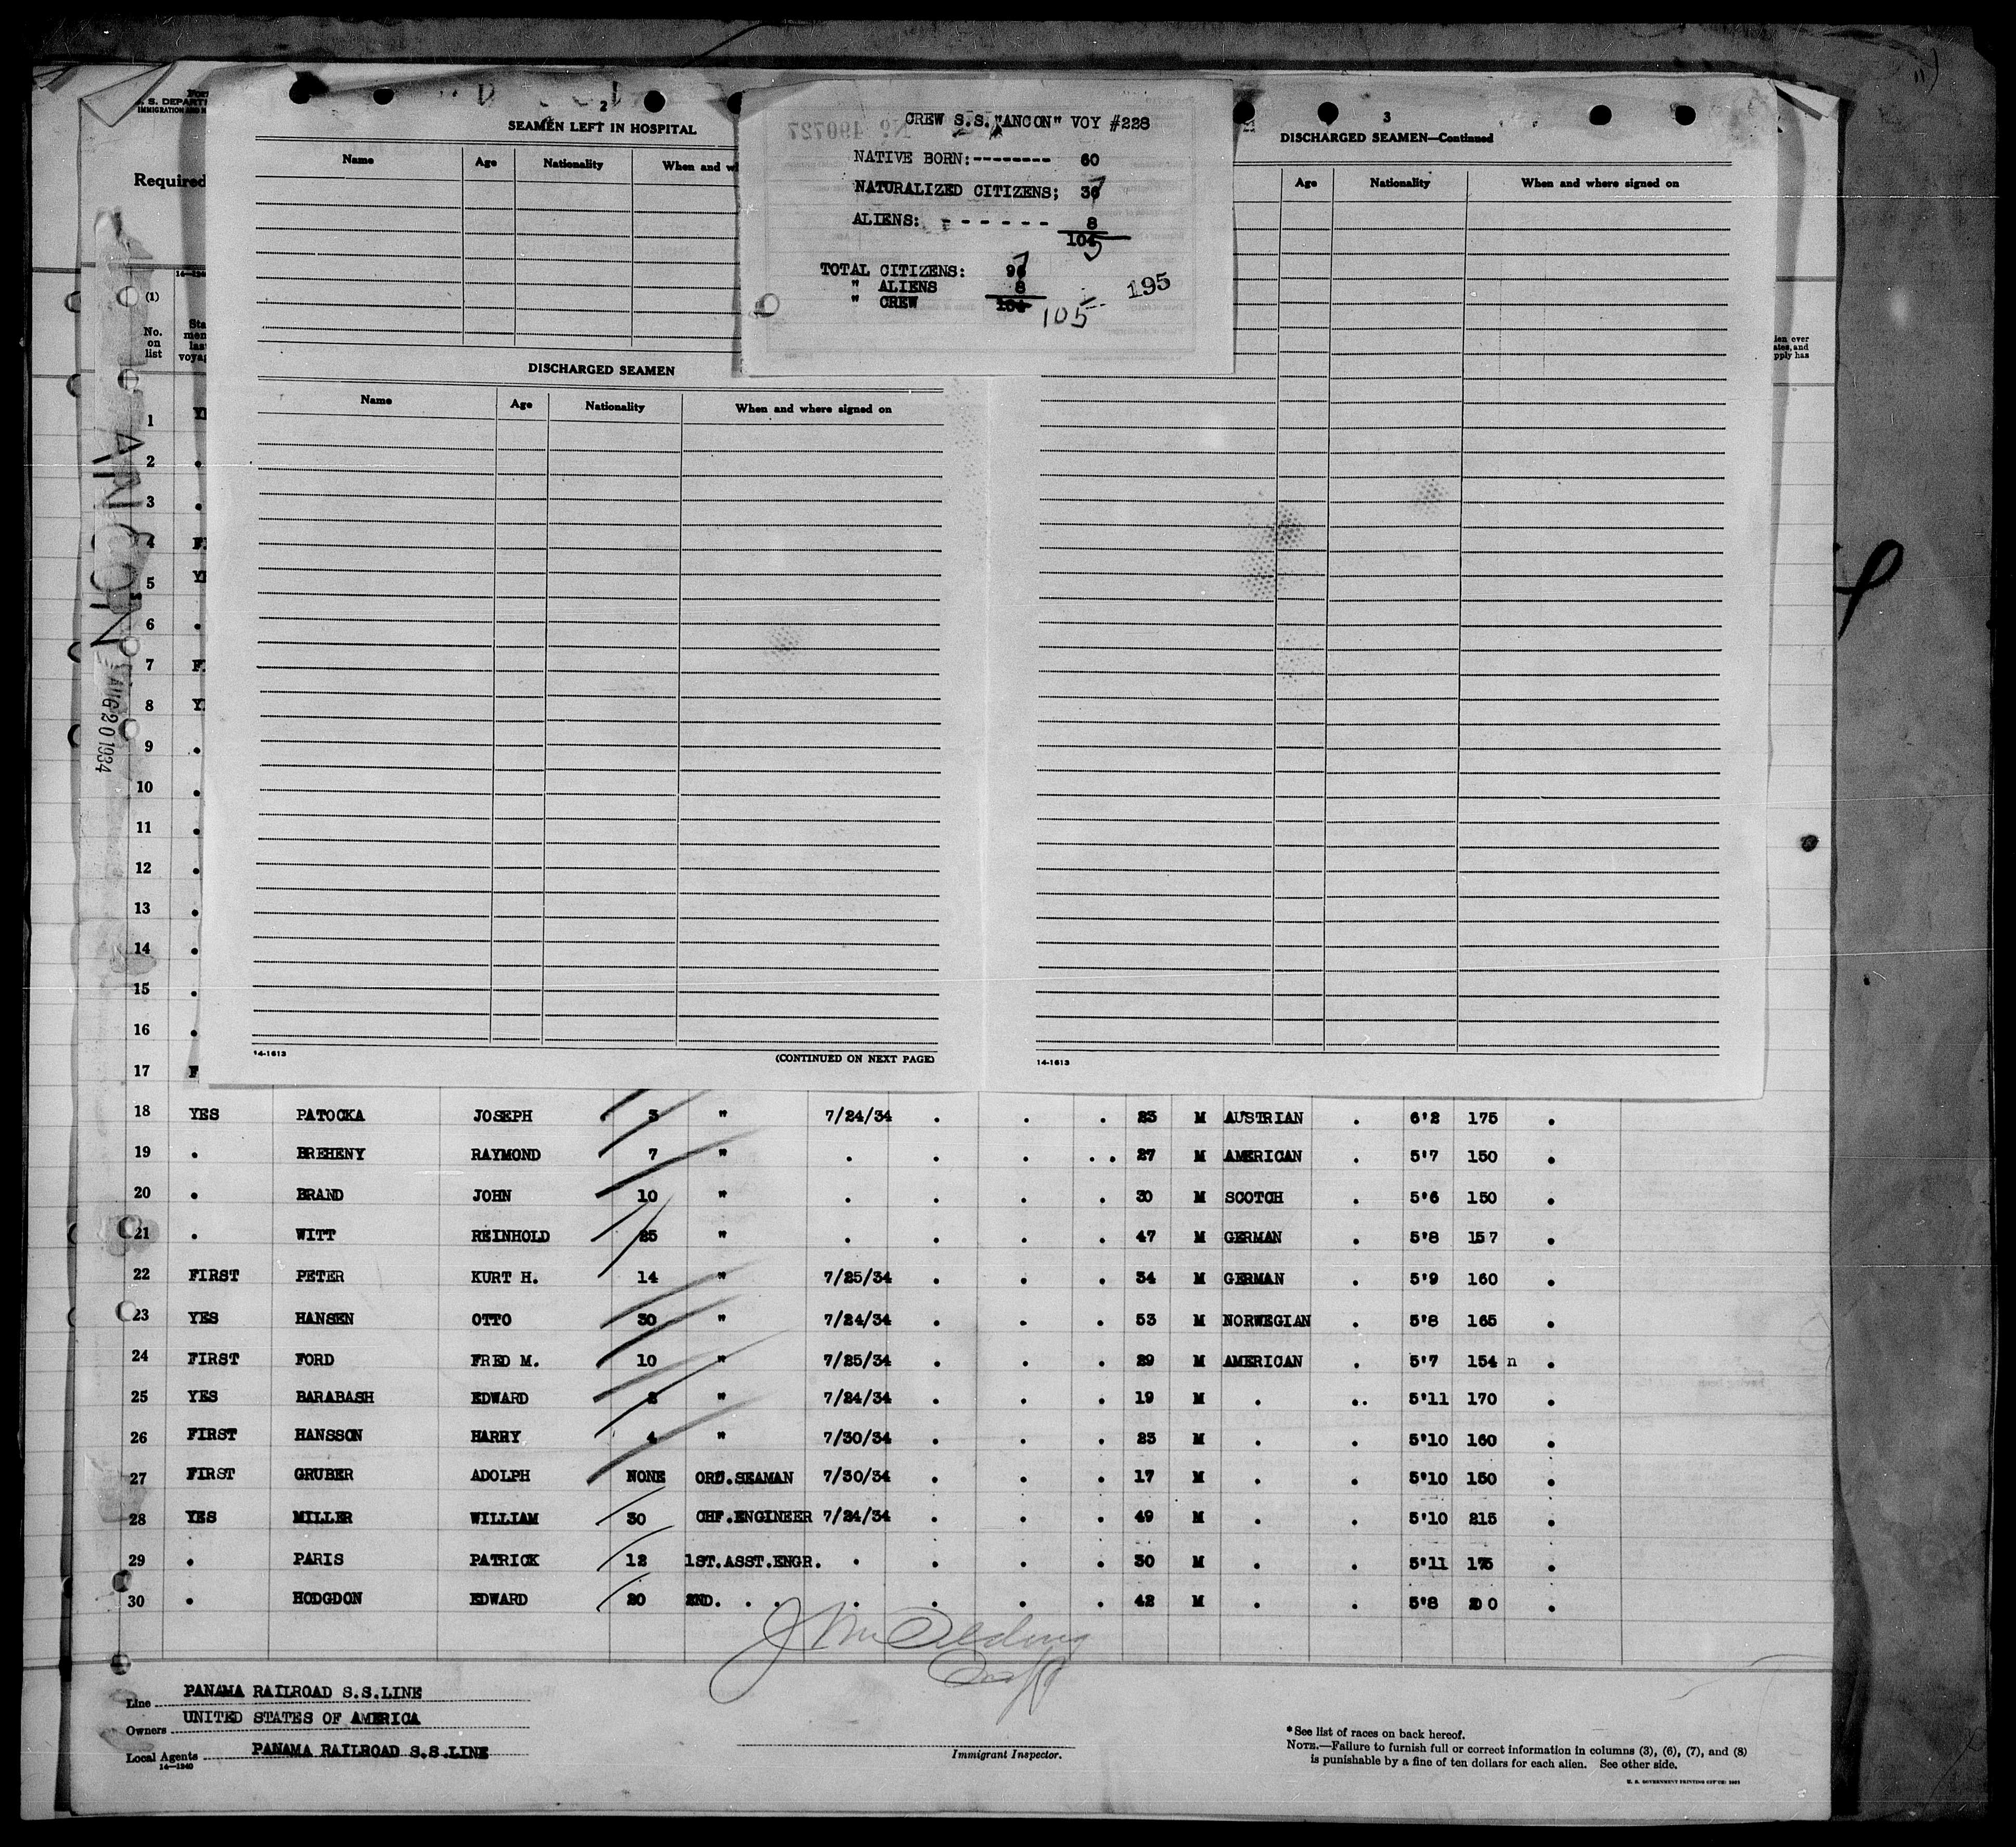 CREW S.S. "ANCON" VOY #228
NATIVE BORN:-------- 60
NATURALIZED CITIZENS; 36 7
ALIENS: - - - - - - 8
104 5
TOTAL CITIZENS: 96 7
" ALIENS 8
" CREW 104 105
195
2
SEAMEN LEFT IN HOSPITAL
Name Age Nationality When and
DISCHARGED SEAMEN
Name Age Nationality When and where signed on
(CONTINUED ON NEXT PAGE)
14-1613
3
DISCHARGED SEAMEN—Continued
Age Nationality When and where signed on
14-1613
S. DEPART
IMMIGRATION AND
Required
(1)
No. on list
ANCON
AUG 20 1934
1
2
3
4
5
6
7
8
9
10
11
12
13
14
15
16
17 F
18 YES PATOCKA JOSEPH 3 " 7/24/34 . . . 23 M AUSTRIAN . 6'2 175 .
19 . BREHENY RAYMOND 7 " . . . . . 27 M AMERICAN . 5'7 150 .
20 . BRAND JOHN 10 " . . . . 30 M SCOTCH . 5'6 150 .
21 . WITT REINHOLD 25 " . . . . 47 M GERMAN . 5'8 157 .
22 FIRST PETER KURT H. 14 " 7/25/34 . . . 34 M GERMAN . 5'9 160 .
23 YES HANSEN OTTO 30 " 7/24/34 . . . 53 M NORWEGIAN . 5'8 165 .
24 FIRST FORD FRED M. 10 " 7/25/34 . . . 29 M AMERICAN . 5'7 154 n .
25 YES BARABASH EDWARD 2 " 7/24/34 . . . 19 M . .. 5'11 170 .
26 FIRST HANSSON HARRY 4 " 7/30/34 . . . 23 M . . 5'10 160 .
27 FIRST GRUBER ADOLPH NONE ORD.SEAMAN 7/30/34 . . . 17 M . . 5'10 150 .
28 YES MILLER WILLIAM 30 CHF.ENGINEER 7/24/34 . . . 49 M . . 5'10 215 .
29 . PARIS PATRICK 12 1ST.ASST.ENGR. . . . . 30 M . . 5'11 175 .
30 . HODGDON EDWARD 20 2ND. . . . . . . 42 M . . 5'8 200 .
Line PANAMA RAILROAD S.S.LINE
Owners UNITED STATES OF AMERICA
Local Agents PANAMA RAILROAD S.S.LINE
14—1240
Immigrant Inspector.
*See list of races on back hereof.
NOTE.—Failure to furnish full or correct information in columns (3), (6), (7), and (8)
is punishable by a fine of ten dollars for each alien. See other side.